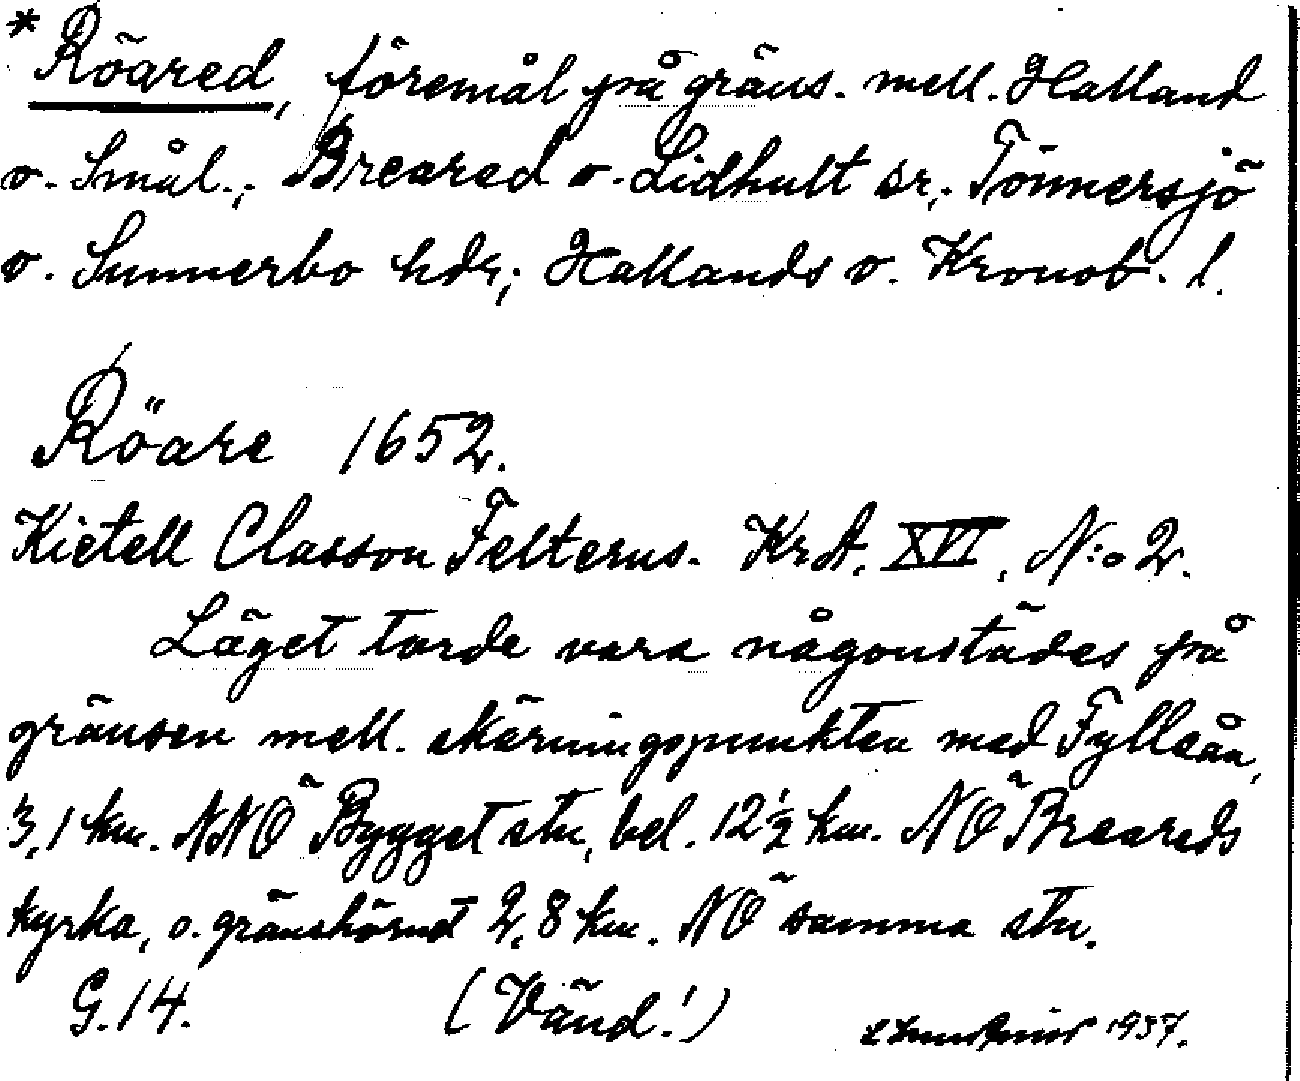 * Röared, föremål på gräns. mell. Halland
o. Smål.; Breared o. Lidhult sr.; Tönnersjö
o. Sunnerbo hdr; Hallands o. Kronob. l.
Röare 1652.
Kietell Classon Felterus. KrA. XVI, N:o 2.
Läget torde vara någonstädes på
gränsen mell. skärningspunkten med Fylleån,
3,1 km. NNÖ Bygget stn, bel. 12½ km. NÖ Breareds
kyrka, o. gränshörnet 2,8 km. NÖ samma stn.
G.14. (Vänd!) 1937.